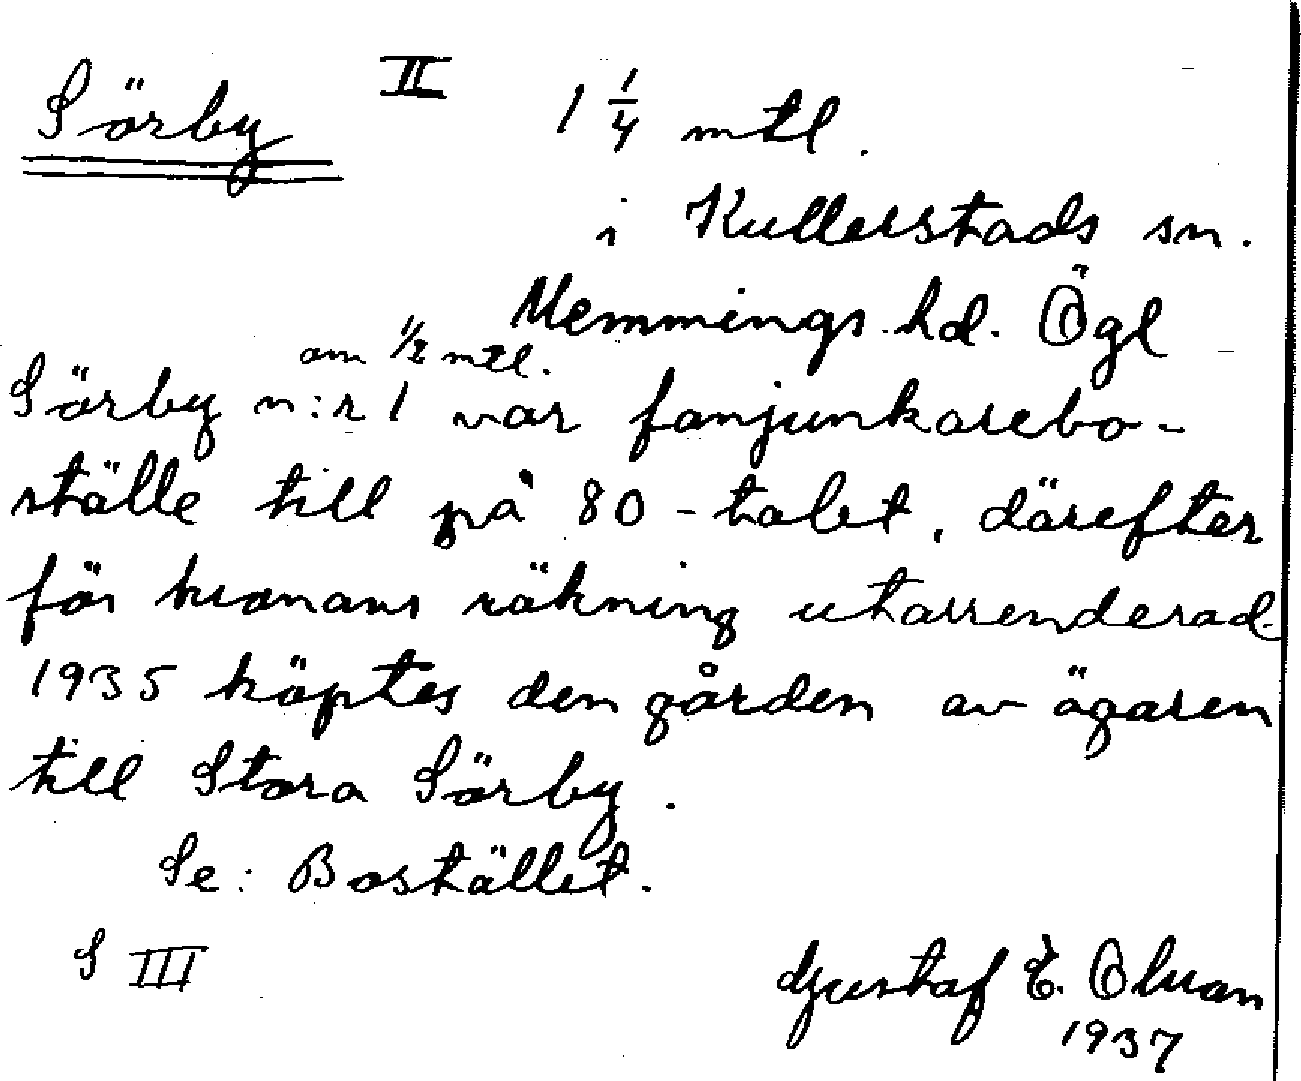 Sörby II 1 1/4 mtl.
i Kullerstads sn.
Memmings hd. Ögl
om 1/2 mtl.
Sörby n:r 1 var fanjunkarebo-
ställe till på 80-talet, därefter
för kronans räkning utarrenderad.
1935 köptes den gården av ägaren
till Stora Sörby.
Se: Bostället.
S III
Gustaf E.
1937